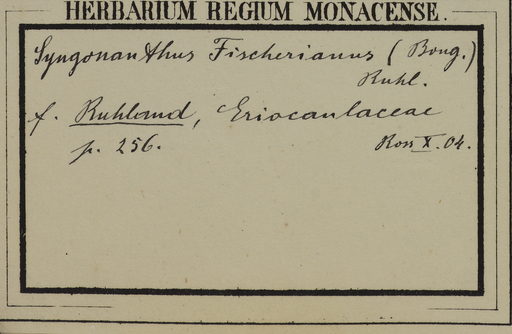 HERBARIUM REGIUM MONACENSE.
Syngonanthus Fischerianus (Bong.)
Ruhl.
f. Ruhland, Eriocaulaceae
p. 256. Ross X. 04.